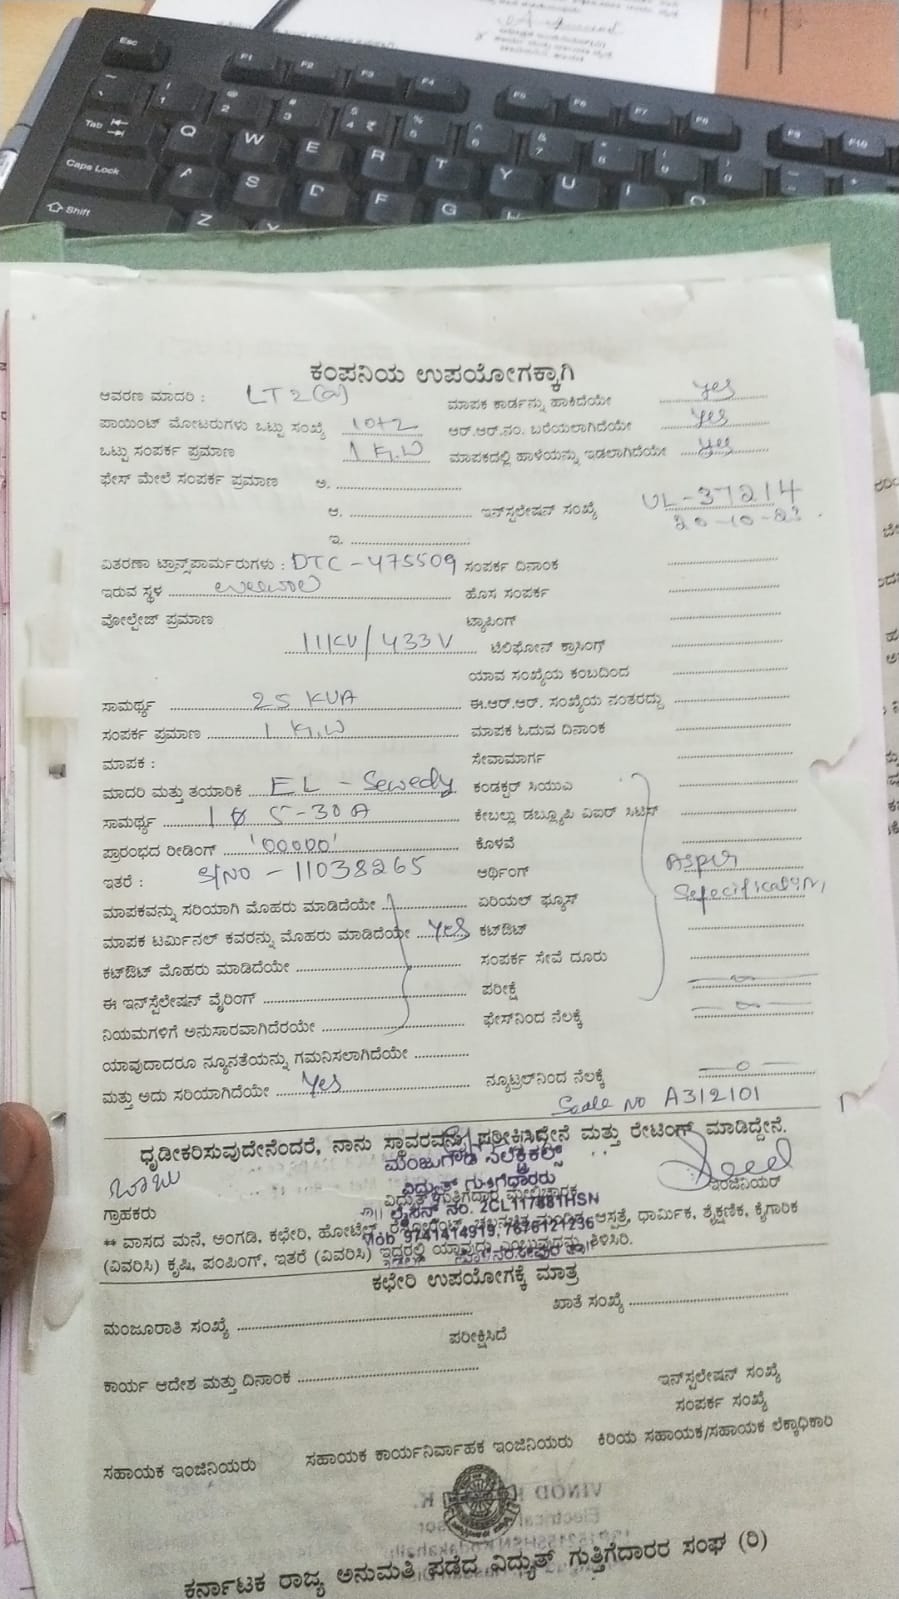 Esc F1 F2 F3 F4 F5 F6 F7 F8 F9 F10
Tab Q W E R T Y U I
Caps Lock A S D F G H
Shift Z X
ಕಂಪನಿಯ ಉಪಯೋಗಕ್ಕಾಗಿ
ಆವರಣ ಮಾದರಿ : LT2(a) ಮಾಪಕ ಕಾರ್ಡನ್ನು ಹಾಕಿದೆಯೇ yes
ಪಾಯಿಂಟ್ ಮೋಟರುಗಳು ಒಟ್ಟು ಸಂಖ್ಯೆ 10+2 ಆರ್.ಆರ್.ನಂ. ಬರೆಯಲಾಗಿದೆಯೇ yes
ಒಟ್ಟು ಸಂಪರ್ಕ ಪ್ರಮಾಣ 1 K.W ಮಾಪಕದಲ್ಲಿ ಹಾಳೆಯನ್ನು ಇಡಲಾಗಿದೆಯೇ yes
ಫೇಸ್ ಮೇಲೆ ಸಂಪರ್ಕ ಪ್ರಮಾಣ ಅ.
ಆ. ಇನ್‌ಸ್ಟಲೇಷನ್ ಸಂಖ್ಯೆ UL-37214
20-10-23
ಇ.
ವಿತರಣಾ ಟ್ರಾನ್ಸ್‌ಪಾರ್ಮರುಗಳು : DTC-475509 ಸಂಪರ್ಕ ದಿನಾಂಕ
ಇರುವ ಸ್ಥಳ ಹೊಸ ಸಂಪರ್ಕ
ವೋಲ್ಟೇಜ್ ಪ್ರಮಾಣ ಟ್ಯಾಪಿಂಗ್
11KV/433V ಟೆಲಿಫೋನ್ ಕ್ರಾಸಿಂಗ್
ಯಾವ ಸಂಖ್ಯೆಯ ಕಂಬದಿಂದ
ಸಾಮರ್ಥ್ಯ 25 KVA ಈ.ಆರ್.ಆರ್. ಸಂಖ್ಯೆಯ ನಂತರದ್ದು
ಸಂಪರ್ಕ ಪ್ರಮಾಣ 1 K.W ಮಾಪಕ ಓದುವ ದಿನಾಂಕ
ಮಾಪಕ : ಸೇವಾಮಾರ್ಗ
ಮಾದರಿ ಮತ್ತು ತಯಾರಿಕೆ EL - Sewedy ಕಂಡಕ್ಟರ್ ಸಿಯುಎ
ಸಾಮರ್ಥ್ಯ 1Ø 5-30A ಕೇಬಲ್ಲು ಡಬ್ಲ್ಯೂಪಿ ವಿಐಆರ್ ಸಿಟಿಸ್
ಪ್ರಾರಂಭದ ರೀಡಿಂಗ್ '00000' ಕೊಳವೆ
ಇತರೆ : S/NO - 11038265 ಆರ್ಥಿಂಗ್ Asper
ಮಾಪಕವನ್ನು ಸರಿಯಾಗಿ ಮೊಹರು ಮಾಡಿದೆಯೇ ಏರಿಯಲ್ ಫ್ಯೂಸ್ Sepecification,
ಮಾಪಕ ಟರ್ಮಿನಲ್ ಕವರನ್ನು ಮೊಹರು ಮಾಡಿದೆಯೇ yes ಕಟ್‌ಔಟ್
ಕಟ್‌ಔಟ್ ಮೊಹರು ಮಾಡಿದೆಯೇ ಸಂಪರ್ಕ ಸೇವೆ ದೂರು
ಈ ಇನ್‌ಸ್ಟೆಲೇಷನ್ ವೈರಿಂಗ್ ಪರೀಕ್ಷೆ
ನಿಯಮಗಳಿಗೆ ಅನುಸಾರವಾಗಿದೆರಯೇ ಫೇಸ್‌ನಿಂದ ನೆಲಕ್ಕೆ
ಯಾವುದಾದರೂ ನ್ಯೂನತೆಯನ್ನು ಗಮನಿಸಲಾಗಿದೆಯೇ
ಮತ್ತು ಅದು ಸರಿಯಾಗಿದೆಯೇ yes ನ್ಯೂಟ್ರಲ್‌ನಿಂದ ನೆಲಕ್ಕೆ
Seale NO A312101
ಧೃಡೀಕರಿಸುವುದೇನೆಂದರೆ, ನಾನು ಸ್ಥಾವರವನ್ನು ಪರೀಕ್ಷಿಸಿದ್ದೇನೆ ಮತ್ತು ರೇಟಿಂಗ್ ಮಾಡಿದ್ದೇನೆ.
ಬಾಬು ಮಂಜುಗೌಡ ಎಲೆಕ್ಟ್ರಿಕಲ್ಸ್
ವಿದ್ಯುತ್ ಗುತ್ತಿಗೆದಾರರು ಇಂಜಿನಿಯರ್
ಗ್ರಾಹಕರು ಲೈಸೆನ್ಸ್ ನಂ. 2CL117881HSN
Mob 9741414919, 7676121236
** ವಾಸದ ಮನೆ, ಅಂಗಡಿ, ಕಛೇರಿ, ಹೋಟೆಲ್, ಆಸ್ಪತ್ರೆ, ಧಾರ್ಮಿಕ, ಶೈಕ್ಷಣಿಕ, ಕೈಗಾರಿಕ
(ವಿವರಿಸಿ) ಕೃಷಿ, ಪಂಪಿಂಗ್, ಇತರೆ (ವಿವರಿಸಿ) ಇದ್ದರಲ್ಲಿ ಯಾವುದು ಎಂಬುವುದನ್ನು ತಿಳಿಸಿರಿ.
ಕಛೇರಿ ಉಪಯೋಗಕ್ಕೆ ಮಾತ್ರ
ಮಂಜೂರಾತಿ ಸಂಖ್ಯೆ ಖಾತೆ ಸಂಖ್ಯೆ
ಪರೀಕ್ಷಿಸಿದೆ
ಕಾರ್ಯ ಆದೇಶ ಮತ್ತು ದಿನಾಂಕ ಇನ್‌ಸ್ಟಲೇಷನ್ ಸಂಖ್ಯೆ
ಸಂಪರ್ಕ ಸಂಖ್ಯೆ
ಸಹಾಯಕ ಇಂಜಿನಿಯರು ಸಹಾಯಕ ಕಾರ್ಯನಿರ್ವಾಹಕ ಇಂಜಿನಿಯರು ಕಿರಿಯ ಸಹಾಯಕ/ಸಹಾಯಕ ಲೆಕ್ಕಾಧಿಕಾರಿ
ಕರ್ನಾಟಕ ರಾಜ್ಯ ಅನುಮತಿ ಪಡೆದ ವಿದ್ಯುತ್ ಗುತ್ತಿಗೆದಾರರ ಸಂಘ (ರಿ)